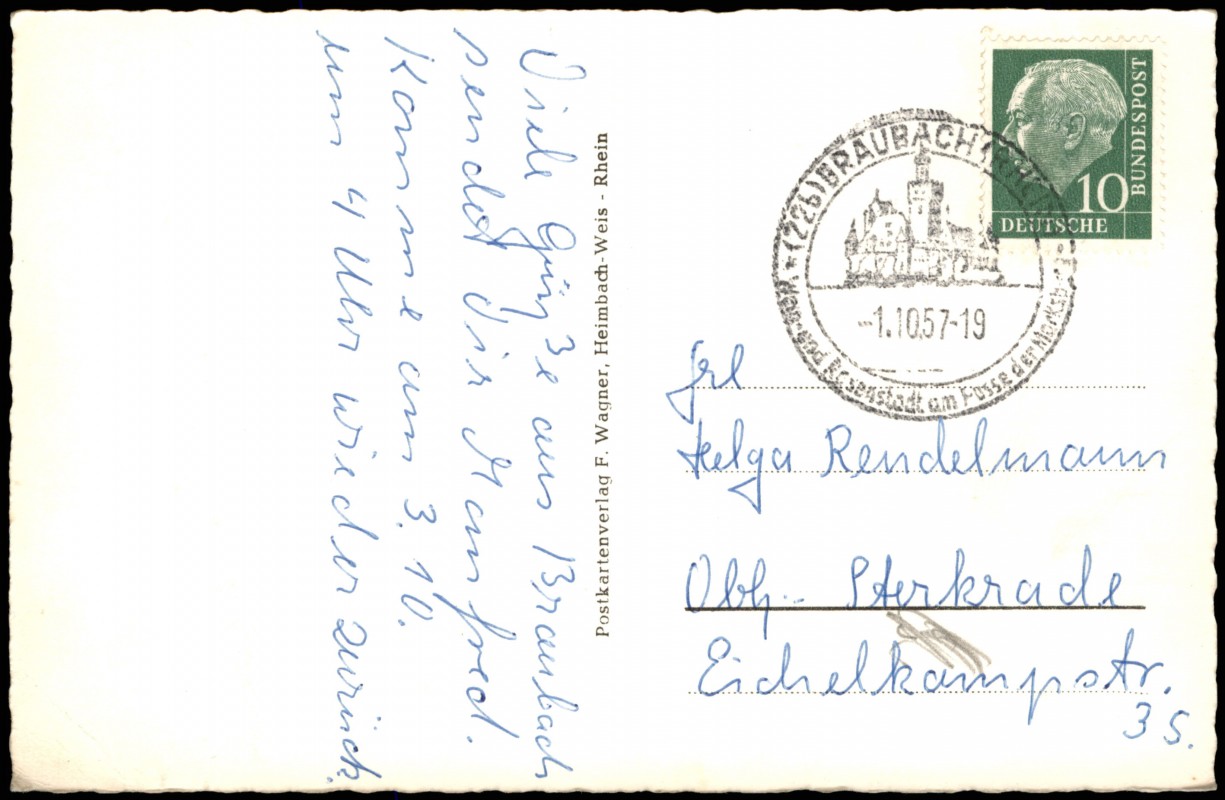 Viele Grüße aus Braubach
sendet Dir Manfred.
Komme am 3. 10.
um 4 Uhr wieder zurück.
Postkartenverlag F. Wagner, Heimbach-Weis - Rhein
DEUTSCHE
BUNDESPOST
10
(22b) BRAUBACH (RHEIN)
-1.10.57-19
und Rosenstadt am Fusse der Marksburg
Frl
Helga Rendelmann
Obh.- Sterkrade
Eichelkampstr.
35.